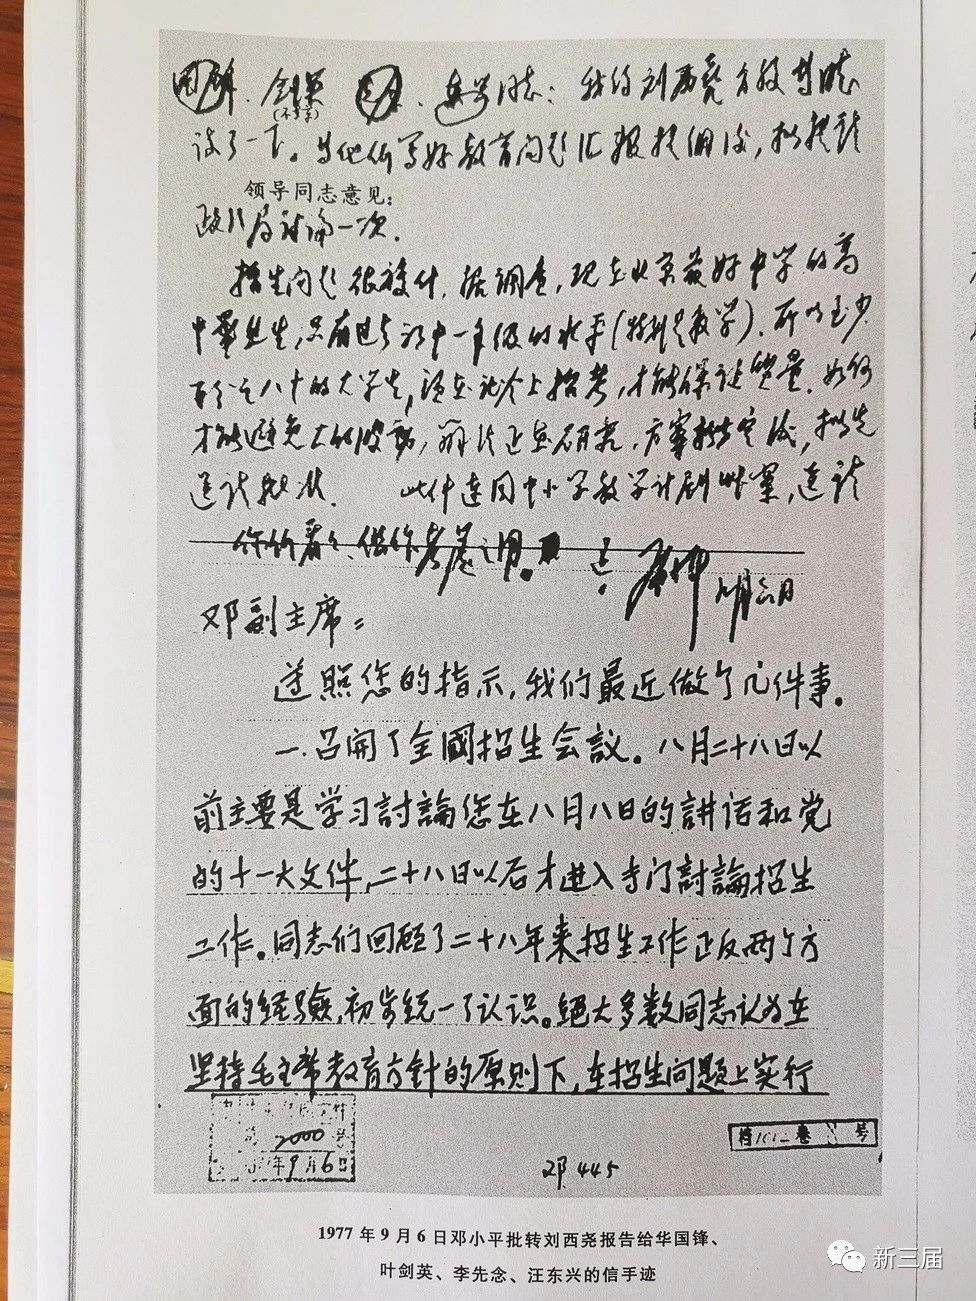 国锋、剑英、先念、东兴同志：我约刘西尧方毅等同志
(不等人)
谈了一下。当他们写好教育问题汇报提纲后，拟提请
领导同志意见：
政治局讨论一次。
招生问题很复杂。据调查，现在北京最好中学的高
中毕业生，只有过去初中一年级的水平(特别是数学)。所以至少
百分之八十的大学生，须在社会上招考，才能保证质量。如何
才能避免大的波动，办法正在研究，方案拟定后，拟先
送请批准。 此件连同中小学教学计划草案，送请
你们看看，供你考虑之用。
邓副主席：
遵照您的指示，我们最近做了几件事。
一.召開了全國招生会议。八月二十八日以
前主要是学习討論您在八月八日的講话和党
的十一大文件，二十八日以后才进入专门討論招生
工作。同志们回顾了二十八年来招生工作正反两个方
面的经验，初步统一了认识。絕大多数同志认为在
坚持毛主席教育方针的原则下，在招生问题上实行
2000
年9月6日
档 卷 号
邓445
1977 年 9 月 6 日邓小平批转刘西尧报告给华国锋、
叶剑英、李先念、汪东兴的信手迹
新三届